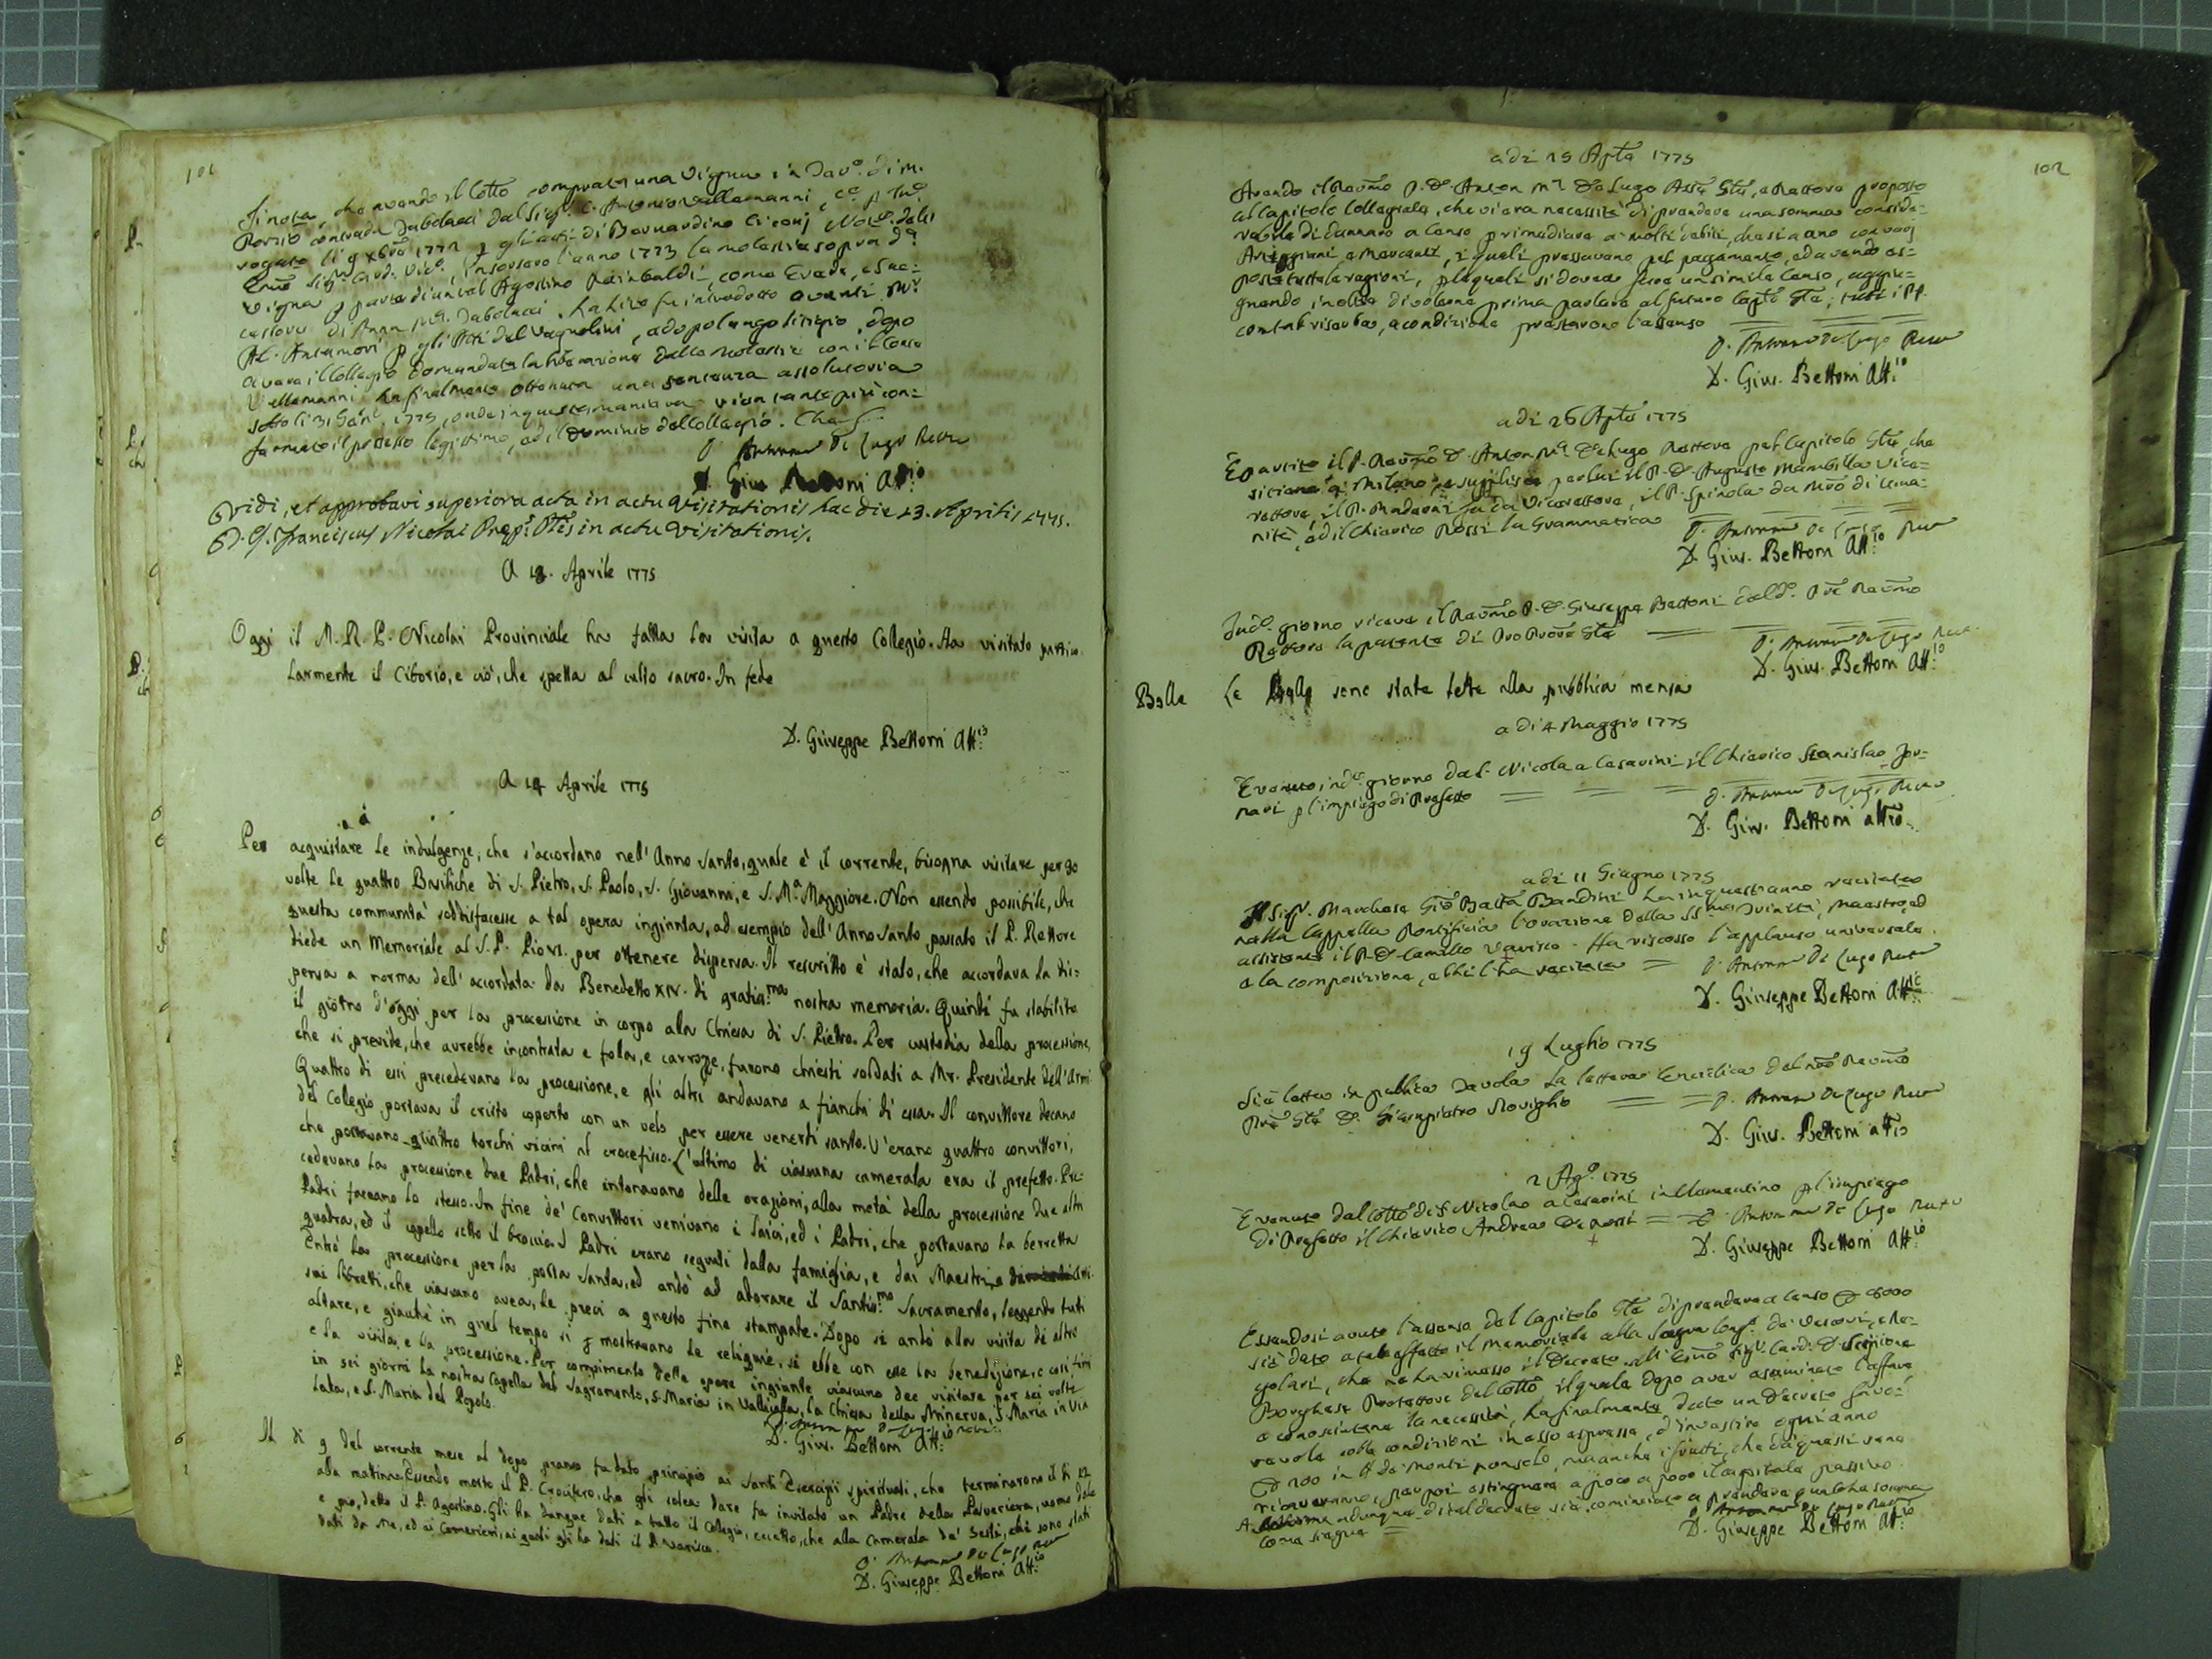 101
Si nota, che avendo il Collo comprata una Vigna in Tav.o di M.
Porzio contrada
rogato li 9 Xbre 1772 p gli atti di Bernardino
Emo Sig.r Card. Vic.o, insorsero l'anno 1773 la molestia sopra d.a
Vigna p parte di un tal Agostino Rainbaldi, come Erede, e suc=
cessore di Anna M.a La lite fu introdotta avanti M.r
p gli Atti del Vagnolini, e dopo lungo litigio, dopo
aver il Collegio domandata la liberazione dalla molestia con il
Vellemanni ha finalmente ottenuta una sentenza assolutoria
sotto li 31 Gen.o 1775, onde in questa maniera vien tanto più con=
fermato il possesso legittimo, ed il Dominio del Collegio. Che
D. Antonm. De Lugo Rettre
D. Gius. Bettoni Att.rio
Vidi, et approbavi superiora acta in actu Visitationis hac die 13. Aprilis 1775.
D. J. Franciscus Nicolai Præp.s Plis in actu Visitationis.
A 13. Aprile 1775
Oggi il M. R. P. Nicolai Provinciale ha fatta la visita a questo Collegio. Ha visitato partico
larmente il Ciborio, e ciò, che spetta al culto sacro. In fede
D. Giuseppe Bettoni Att.io
A 14 Aprile 1775
Per acquistare le indulgenze, che s'accordano nell'Anno santo, quale è il corrente, bisogna visitare per 30
volte le quattro Basiliche di S. Pietro, S. Paolo, S. Giovanni, e S. M.a Maggiore. Non essendo possibile, che
questa communità soddisfacesse a tal opera ingiunta, ad esempio dell'Anno santo passato il P. Rettore
diede un Memoriale al S. P. Pio VI. per ottenere dispensa. Il rescritto è stato, che accordava la dis=
pensa a norma dell'accordata da Benedetto XIV. di gratis.ma nostra memoria. Quindi fu stabilito
il giorno d'oggi per la processione in corpo alla Chiesa di S. Pietro. Per custodia della processione,
che si previde, che avrebbe incontrata e folla, e carrozze, furono chiesti soldati a Mr. Presidente dell'Armi.
Quattro di essi precedevano la processione, e gli altri andavano a fianchi di essa. Il convittore decano
del Collegio portava il cristo coperto con un velo per essere venerdì santo. V'erano quattro convittori,
che portavano quattro torchi vicini al crocefisso. L'ultimo di ciascuna camerata era il prefetto. Pre=
cedevano la processione due Padri, che intonavano delle orazioni, alla metà della processione due altri
Padri facevano lo stesso. In fine de' Convittori venivano i laici, ed i Padri, che portavano la berretta
quadra, ed il cappello sotto il braccio. I Padri erano seguiti dalla famiglia, e dai Maestri
Entrò la processione per la porta santa, ed andò ad adorare il Santis.mo Sacramento, leggendo tutti
sui libretti, che ciascuno avea, le preci a questo fine stampate. Dopo si andò alla visita di altri
altare, e giacchè in quel tempo si mostravano le reliquie, si ebbe con esse la benedizione, e così finì
e la visita, e la processione. Per compimento delle opere ingiunte ciascuno dee visitare per sei volte
in sei giorni la nostra Capella del Sagramento, S. Maria in Vallicella, la Chiesa della Minerva, S. Maria in Via
Lata, e S. Maria del Popolo.
D. Antonm. De Lugo Rettre
D. Gius. Bettoni Att.io
Il dì 9 del corrente mese al dopo pranzo fu dato principio ai Santi Esercizii spirituali, che terminarono il dì 12
alla mattina. Essendo morto il P. Crocifero, che gli solea dare fu invitato un Padre della Polveriera, uomo dotto
e pio, detto il P. Agostino. Gli ha dunque dati a tutto il Collegio, eccetto, che alla Camerata de' Sesti, che sono stati
dati da me, ed ai Camerieri, ai quali gli ha dati il P. Varisco.
D. Antonm. De Lugo Rett
D. Giuseppe Bettoni Att.io
102
adi 25 Aple 1775
Avendo il Revmo P. D. Anton M.a De Lugo Rettore proposto
al Capitolo Collegiale, che vi era necessità di prendere una somma conside=
rabile di dannaro a Censo p rimediare a molti debiti, che si anno con varj
Artiggiani e Mercanti, i quali pressavano pel pagamento, ed avendo es=
poste tutte le ragioni, p le quali si dovea fare un simile Censo, aggiu=
gnendo inoltre di volerne prima parlare al futuro Caplo Gle, tutti i PP.
con tal riserba, e condizione prestarono l'assenso
D. Antonm. De Lugo Rettre
D. Gius. Bettoni Att.io
adi 26 Aple 1775
È partito il P. Revmo D. Anton M.a De Lugo Rettore pel Capitolo Gle, che
si tiene a Milano, e supplisce per lui il P. D. Augusto Mambilla Vice=
rettore, il P. fa da Vicerettore, il P. Spinola da Mro di uma=
nità, ed il Chierico Rossi la Grammatica
D. Antonm. De Lugo Rett
D. Gius. Bettoni Att.io
In d.o giorno riceve il Revmo P. D. Giuseppe Bettoni dal d.o Pre Revmo
Rettore la patente di Gle
D. Antonm. De Lugo Rett
D. Gius. Bettoni Att.io
Bolle
Le Bolle sono state lette alla pubblica mensa
adi 4 Maggio 1775
È venuto in d.o giorno da S. Nicola a Cesarini il Chierico Stanislao For=
nari p l'impiego di Prefetto
D. Antonm. De Lugo Rett
D. Gius. Bettoni Attio.
adi 11 Giugno 1775
Il Sig.r Marchese Gio Batta Bandini ha in quest'anno recitato
nella Cappella Pontificia l'orazione della SS.ma Trinità, Maestro, ed
assistente il P. D. Camillo Varisco. Ha riscosso l'applauso universale
e la composizione, e chi l'ha recitata
D. Antonm. De Lugo Rett
D. Giuseppe Bettoni Att.io
19 Luglio 1775
Si è letta in publica Tavola la lettera Enciclica del nro Revmo
Pre Gle D. Giampietro Roviglio
D. Antonm. De Lugo Rett
D. Gius. Bettoni Attio
2 Ag.o 1775
È venuto dal Collo di S. Nicolao a Cesarini in Clementino p l'impiego
di Prefetto il Chierico Andrea De Rossi
D. Antonm. De Lugo Rett
D. Giuseppe Bettoni Att.io
Essendosi avuto l'assenso del Capitolo Gle di prendere a Censo 8000
si è dato a tale effetto il memoriale alla Sagra Cong.e de' Vescovi, e Re=
golari, che ne ha rimesso il Decreto all'Emo Sig.r Card. D. Scipione
Borghese Protettore del Collo, il quale dopo aver esaminato l'affare
e conosciutane la necessità, ha finalmente dato un Decreto favo=
revole colle condizioni in esso espresse, d'investire ogni anno
200 in de' Monti non solo, ma anche i frutti, che da questi sene
riceveranno, per poi estinguere a poco a poco il capitale passivo.
A norma adunque di tal decreto si è cominciato a prendere qualche somma
come siegue =
D. Antonm. De Lugo Rett
D. Giuseppe Bettoni Att.io